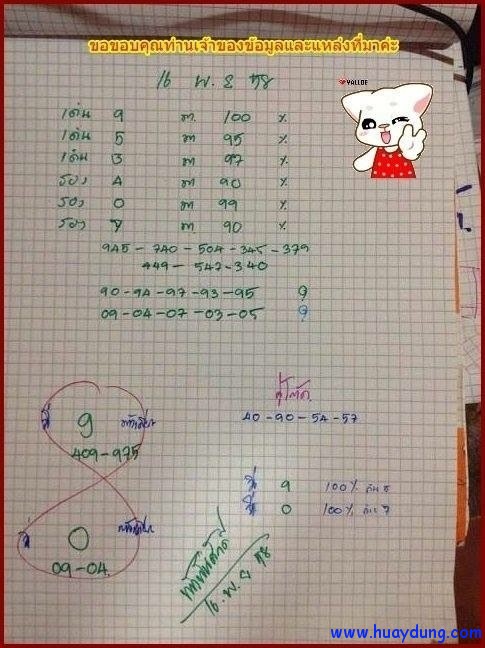 ขอขอบคุณท่านเจ้าของข้อมูลและแหล่งที่มาค่ะ
16 พ.ย 58
YALLOE
เด่น 9 ก. 100 %
เด่น 5 ก 95 %
เด่น 3 ก 97 %
รอง 4 ก 90 %
รอง 0 ก 99 %
รอง 7 ก 90 %
945 - 740 - 504 - 345 - 379
449 - 547 - 340
90 - 94 - 97 - 93 - 95
09 - 04 - 07 - 03 - 05
40 - 90 - 54 - 57
9
409 - 975
9 100%
0 100%
0
09-04
16 พ.ย 58
www.huaydung.com